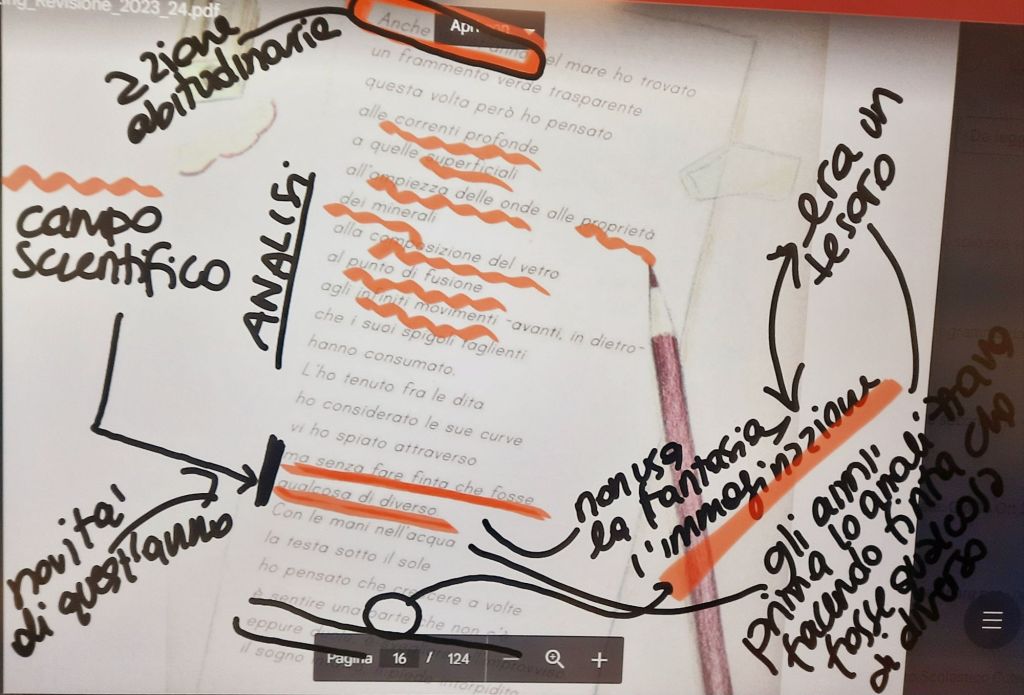 ng_Revisione_2023_24.pdf
azione
abitudinaria
Anche
el mare ho trovato
un frammento verde trasparente
questa volta però ho pensato
alle correnti profonde
a quelle superficiali
all'ampiezza delle onde alle proprietà
dei minerali
alla composizione del vetro
al punto di fusione
agli infiniti movimenti -avanti, in dietro-
che i suoi spigoli taglienti
hanno consumato.
L'ho tenuto fra le dita
ho considerato le sue curve
vi ho spiato attraverso
ma senza fare finta che fosse
qualcosa di diverso
Con le mani nell'acqua
la testa sotto il sole
ho pensato che crescere a volte
è sentire una parte che non c'è
eppure
il sogno
campo
scientifico
ANALISI
novità
di quest'anno
era un
tesoro
non usa
la fantasia
l'immaginazione
gli anni
prima lo analizzavano
facendo finta che
fosse qualcosa
di diverso
Pagina 16 / 124